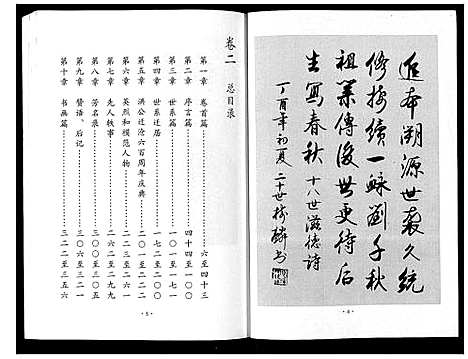 追本溯源世袭久統
修按續一脉劉千秋
祖業傳後世更待后
生寫春秋 十八世滋德詩
丁酉年初夏 二十世
·4·
卷二 总目录
第一章 卷首篇 六至四十三
第二章 序言篇 四十四至一〇〇
第三章 世系篇 一〇一至一七一
第四章 世系迁居 一七二至二一〇
第五章 洪公迁沧六百周年庆典
第六章 英烈和模范人物
第七章 先人轶事 二六二至二九九
第八章 芳名录 三〇〇至三〇五
第九章 赞语、后记 三〇六至三二一
第十章 书画篇 三二二至三五六
·5·